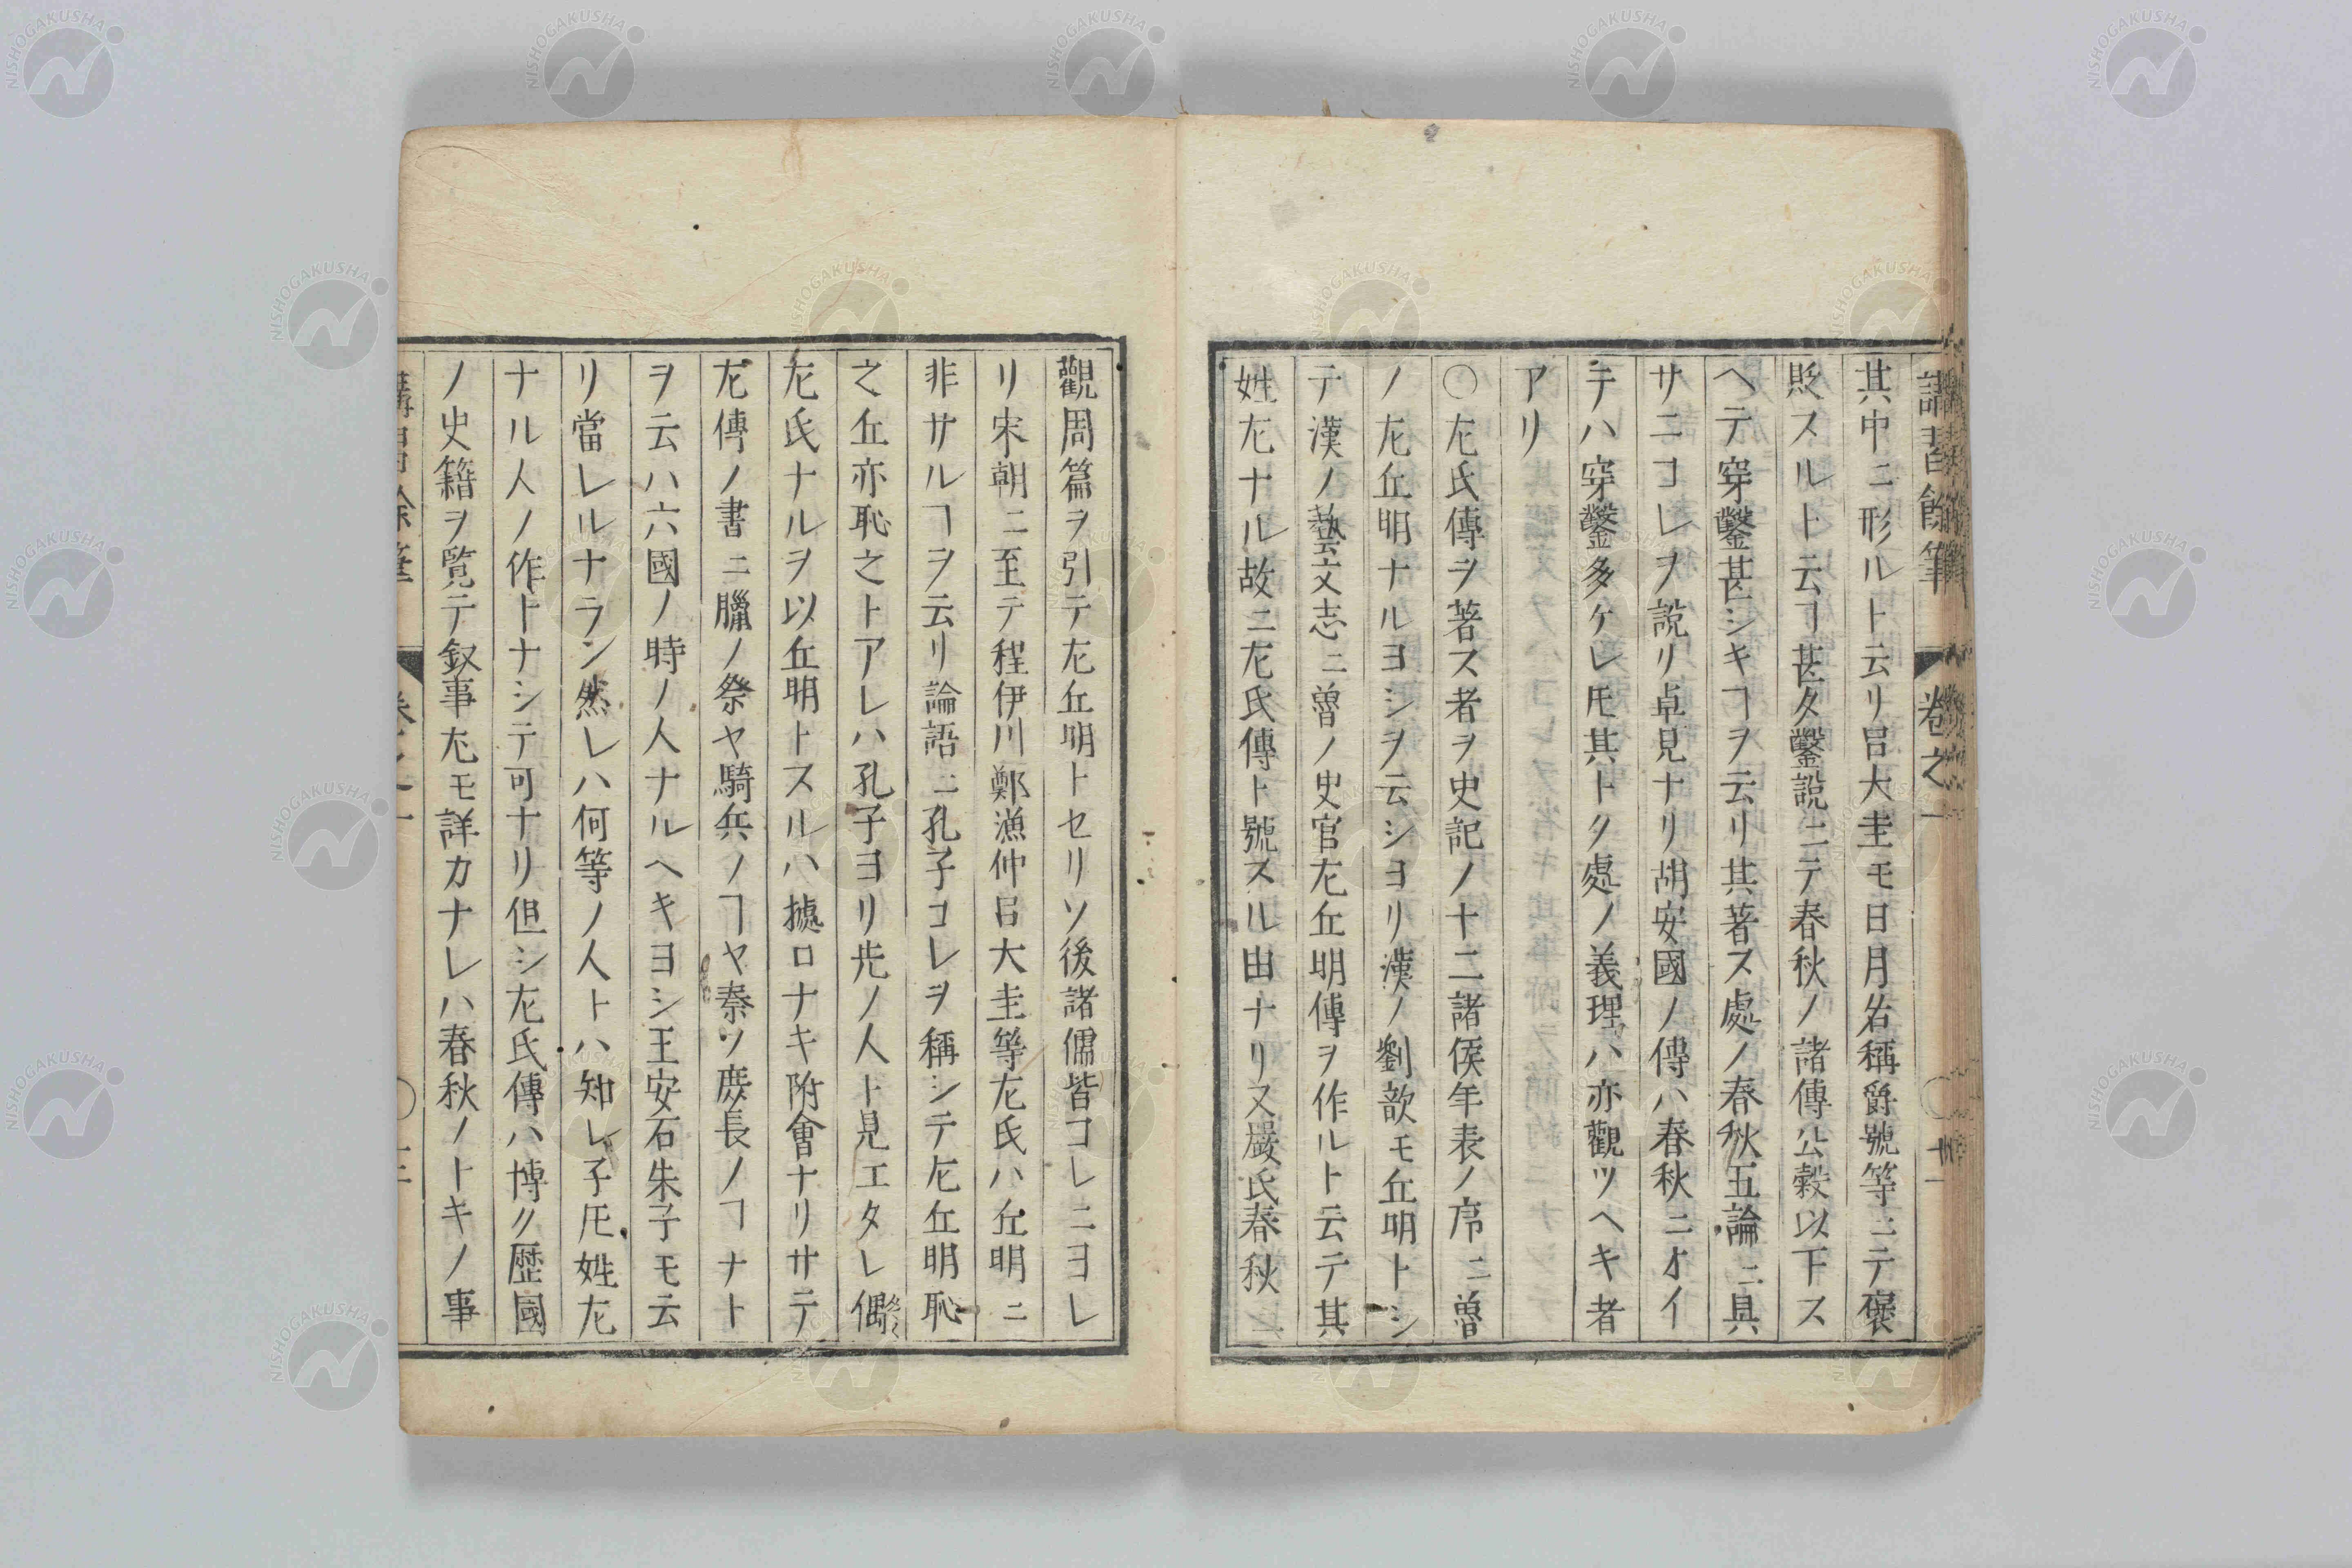 講習餘筆 卷之一 〇廿一
其中ニ形ルト云リ呂大圭モ日月名稱爵號等ニテ褒
貶スルト云ヿ甚タ鑿說ニテ春秋ノ諸傳公穀以下ス
ヘテ穿鑿甚シキヿヲ云リ其著ス處ノ春秋五論ニ具
サニコレヲ說リ卓見ナリ胡安國ノ傳ハ春秋ニオイ
テハ穿鑿多ケレ𪜈其トク處ノ義理ハ亦觀ツヘキ者
アリ
〇左氏傳ヲ著ス者ヲ史記ノ十二諸侯年表ノ序ニ魯
ノ左丘明ナルヨシヲ云シヨリ漢ノ劉歆モ丘明トシ
テ漢ノ藝文志ニ魯ノ史官左丘明傳ヲ作ルト云テ其
姓左ナル故ニ左氏傳ト號スル由ナリ又嚴氏春秋ニ
觀周篇ヲ引テ左丘明トセリソ後諸儒皆コレニヨレ
リ宋朝ニ至テ程伊川鄭漁仲呂大圭等左氏ハ丘明ニ
非サルヿヲ云リ論語ニ孔子コレヲ稱シテ左丘明恥
之丘亦恥之トアレハ孔子ヨリ先ノ人ト見エタレ偶
左氏ナルヲ以丘明トスルハ據ロナキ附會ナリサテ
左傳ノ書ニ臘ノ祭ヤ騎兵ノヿヤ秦ノ庻長ノヿナト
ヲ云ハ六國ノ時ノ人ナルヘキヨシ王安石朱子モ云
リ當レルナラン然レハ何等ノ人トハ知レ子𪜈姓左
ナル人ノ作トナシテ可ナリ但シ左氏傳ハ博ク歷國
ノ史籍ヲ覧テ叙事尤モ詳カナレハ春秋ノトキノ事